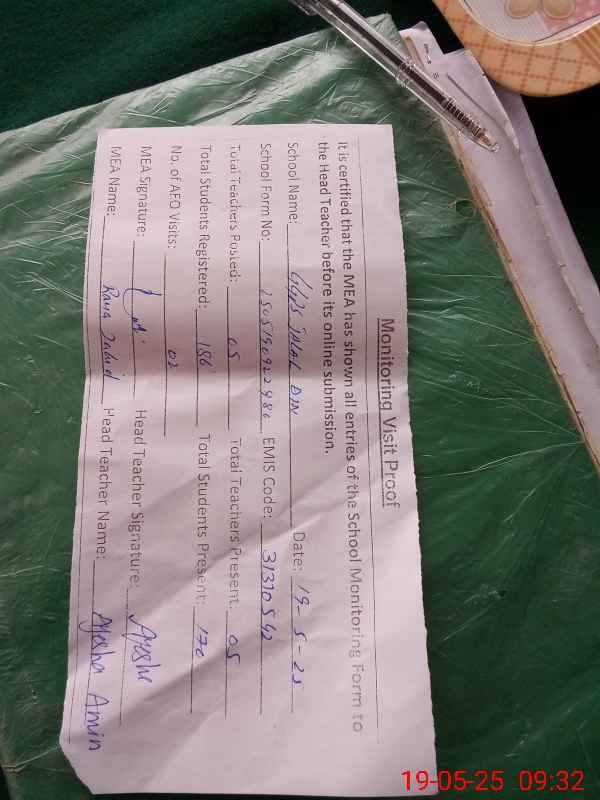 Monitoring Visit Proof
It is certified that the MEA has shown all entries of the School Monitoring Form to
the Head Teacher before its online submission.
School Name: GGPS JALAL DIN Date: 19-5-25
School Form No: EMIS Code: 31310542
Total Teachers Posted: 05 Total Teachers Present: 05
Total Students Registered: 186 Total Students Present: 170
No. of AEO Visits: 02
MEA Signature: Head Teacher Signature: Ayesha
MEA Name: Rana Zahid Head Teacher Name: Ayesha Amin
19-05-25 09:32